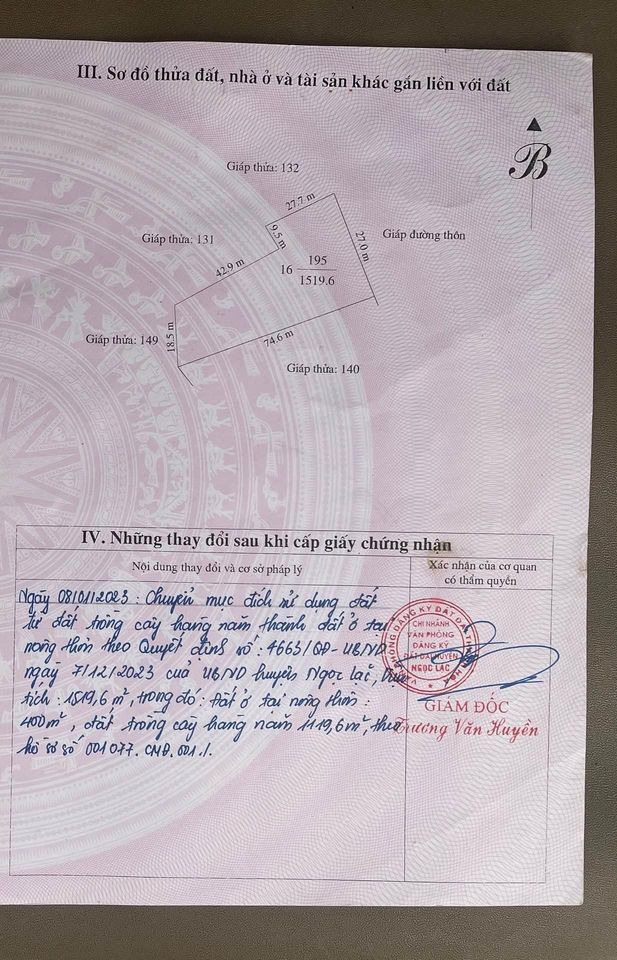 III. Sơ đồ thửa đất, nhà ở và tài sản khác gắn liền với đất
B
Giáp thửa: 132
27.7 m
Giáp thửa: 131
9.5 m
27.0 m
Giáp đường thôn
42.9 m
16 195
1519.6
Giáp thửa: 149
18.5 m
74.6 m
Giáp thửa: 140
IV. Những thay đổi sau khi cấp giấy chứng nhận
Nội dung thay đổi và cơ sở pháp lý
Xác nhận của cơ quan
có thẩm quyền
Ngày 08/01/2023: Chuyển mục đích sử dụng đất
từ đất trồng cây hàng năm thành đất ở tại
nông thôn theo Quyết định số: 4663/QĐ-UBND
ngày 7/12/2023 của UBND huyện Ngọc Lặc,
tích: 1519,6 m², trong đó: Đất ở tại nông thôn:
400 m², đất trồng cây hàng năm 1119,6 m², theo
hồ sơ số 001077.CMĐ.001./.
VĂN PHÒNG ĐĂNG KÝ ĐẤT ĐAI
CHI NHÁNH
VĂN PHÒNG
ĐĂNG KÝ
ĐẤT ĐAI HUYỆN
NGỌC LẶC
GIÁM ĐỐC
Trương Văn Huyền